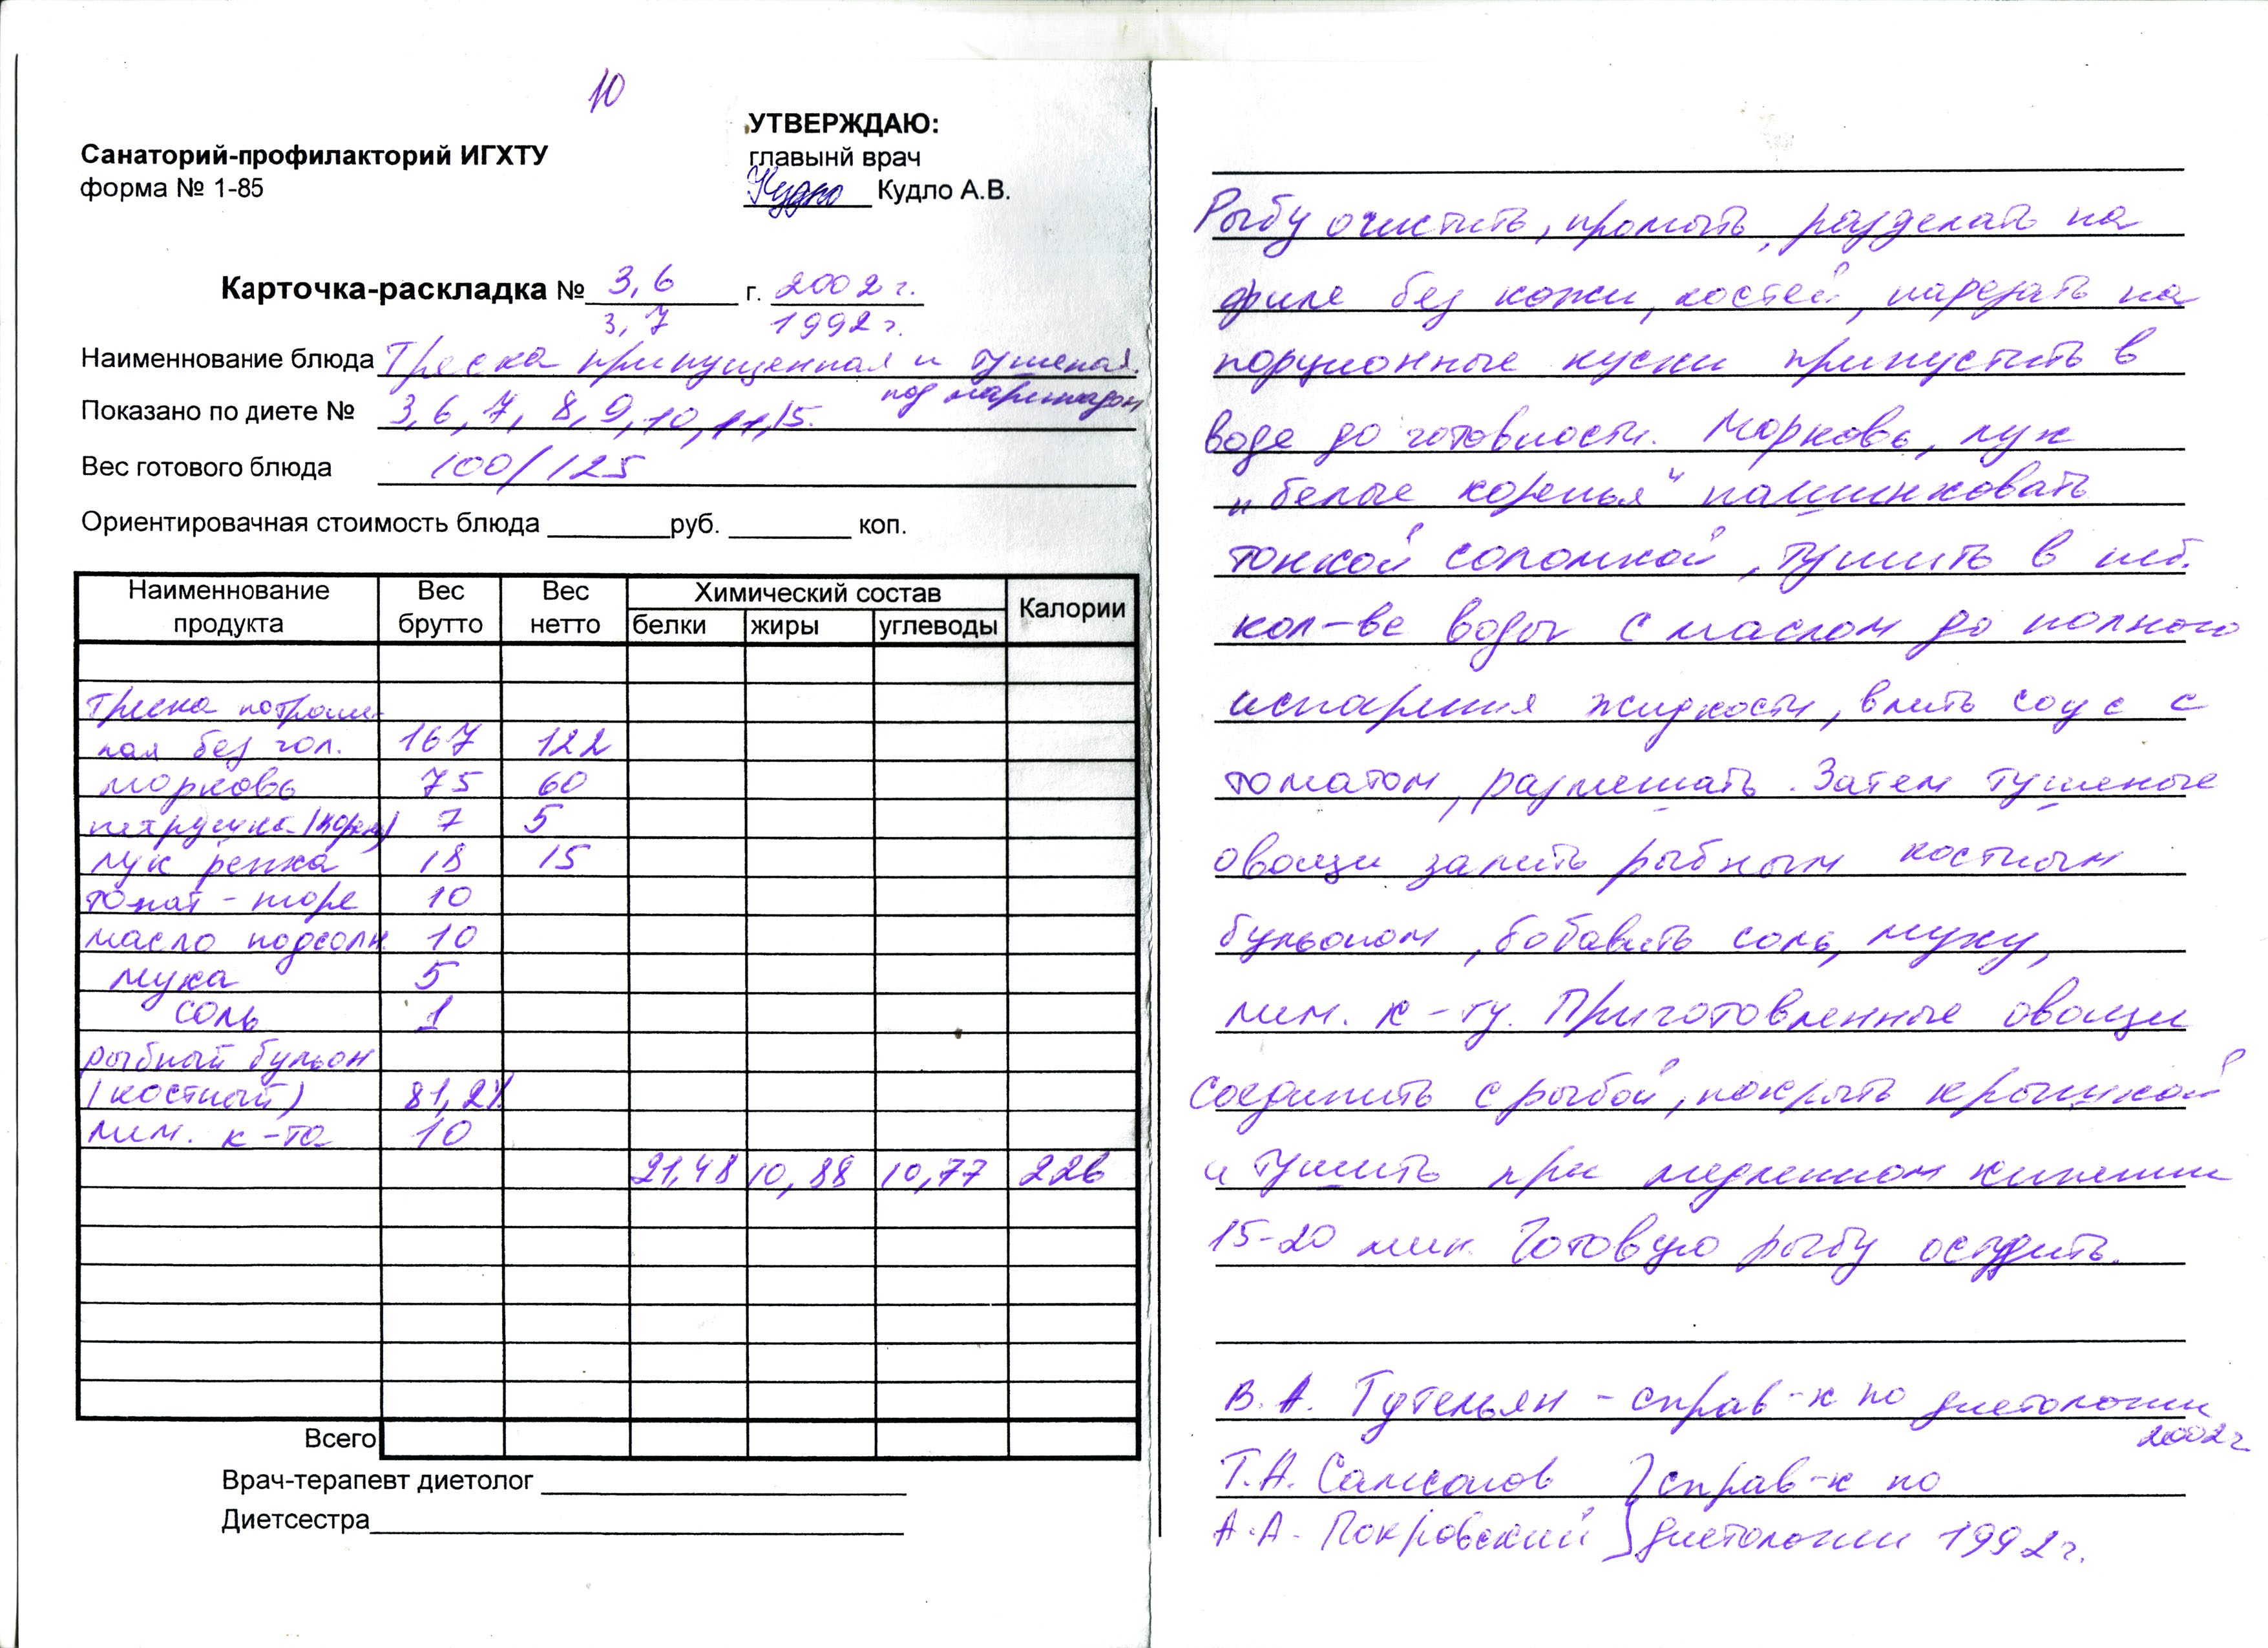 10
УТВЕРЖДАЮ:
Санаторий-профилакторий ИГХТУ
главынй врач
форма № 1-85
Кудло Кудло А.В.
Карточка-раскладка № 3,6 г. 2002 г.
3,7 1992 г.
Наименнование блюда Треска припущенная и тушеная
под маринадом
Показано по диете № 3, 6, 7, 8, 9, 10, 11, 15.
Вес готового блюда 100/125
Ориентировачная стоимость блюда руб. коп.
Наименнование продукта Вес брутто Вес нетто Химический состав Калории
белки жиры углеводы
треска потраше-
ная без гол. 167 122
морковь 75 60
петрушка (корень) 7 5
лук репка 18 15
томат-пюре 10
масло подсолн. 10
мука 5
соль 1
рыбный бульон
(костный) 81,2%
лим. к-та 10
21,48 10,88 10,77 226
Всего
Врач-терапевт диетолог
Диетсестра
Рыбу очистить, промыть, разделать на
филе без кожи, костей, нарезать на
порционные куски припустить в
воде до готовности. Морковь, лук
„белые коренья“ нашинковать
тонкой соломкой, тушить в неб.
кол-ве воды с маслом до полного
испарения жидкости, влить соус с
томатом, размешать. Затем тушеные
овощи залить рыбным костным
бульоном, бобавить соль, муку,
лим. к-ту. Приготовленные овощи
соединить с рыбой, покрыть крышкой
и тушить при медленном кипении
15-20 мин. Готовую рыбу остудить.
В. А. Тутельян – справ-к по диетологии
2002 г
Т.А. Самсонов } справ-к по
А.А. Покровский } диетологии 1992 г.